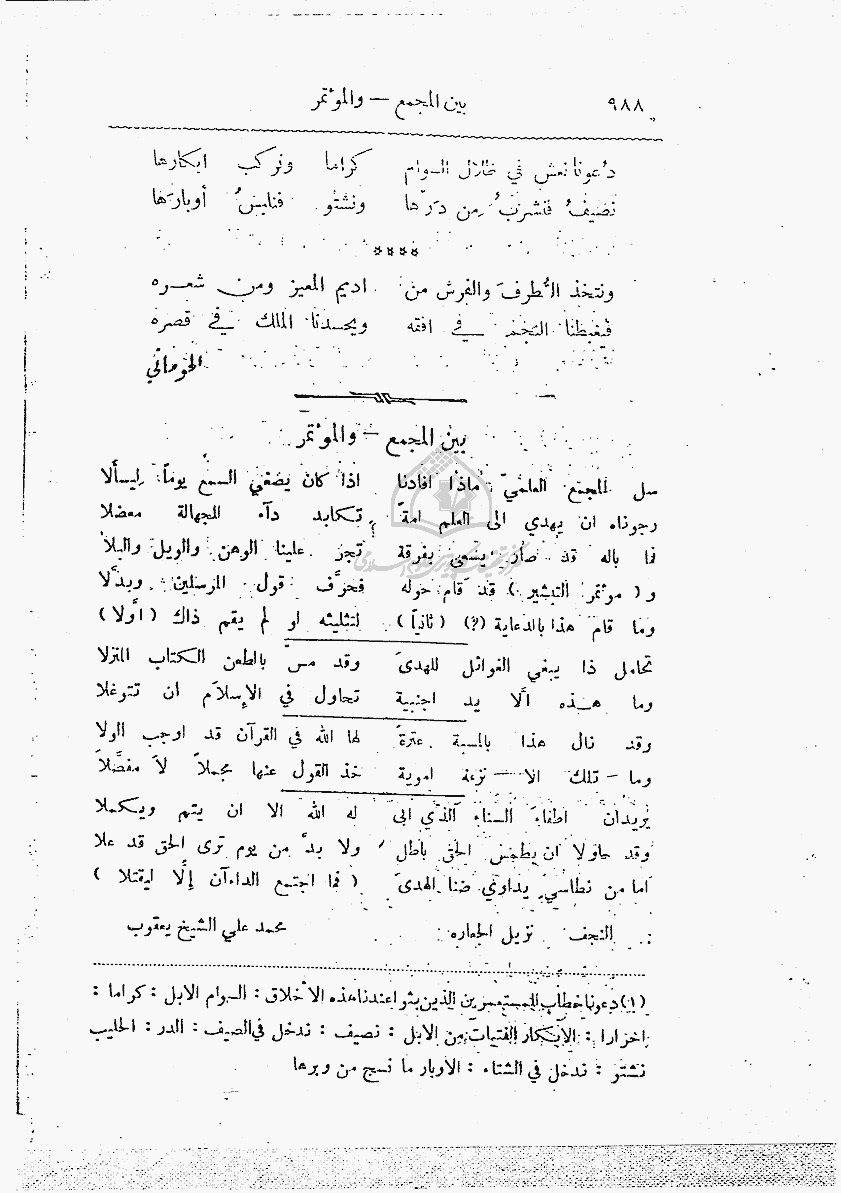 ٩٨٨ بين المجمع — والمؤتمر
دعونا نعش في ظلال السوام كراما ونركب ابكارها
نصيفُ فنشربُ من درّها ونشتو فنلبسُ أوبارَها
****
ونتخذ الطرفَ والفرش من اديم المعيز ومن شعره
فيغبطنا النجم في افقه ويحسدنا الملك في قصره
الحوماني
بين المجمع — والمؤتمر
سل المجمع العلميّ ماذا افادنا اذا كان يصغي السمع يوماً ليسألا
رجوناه ان يهدي الى العلم امةً تكابد دآء الجهالة معضلا
فما باله قد صار يسعى بفرقة تجر علينا الوهن والويل والبلا
و( مؤتمر التبشير ) قد قام حوله فحرَّف قول المرسلين وبدَّلا
وما قام هذا بالدعاية (؟) (ثانياً) لتثليثه او لم يقم ذاك (أولا)
تحامل ذا يبغي الغوائل للهدى وقد مس بالطعن الكتاب المنزلا
وما هذه الّا يد اجنبية تحاول في الإسلام ان تتوغلا
وقد نال هذا بالمسبة عترةً لها الله في القرآن قد اوجب الولا
وما — تلك الا — نزعة اموية خذ القول عنها مجملاً لا مفصّلاً
يريدان اطفاء السناء الذي ابى له الله الا ان يتم ويكملا
وقد حاولا ان يطمس الحق باطل ولا بدَّ من يوم ترى الحق قد علا
اما من نطاسي يداوي ضنا الهدى ( فما اجتمع الداءآن إلّا ليقتلا )
النجف نزيل الجعاره محمد علي الشيخ يعقوب
(١) دعونا خطاب للمستعمرين الذين بثوا عندنا هذه الأخلاق : السوام الابل : كراما :
احرارا : الابكار الفتيات من الابل : نصيف : ندخل في الصيف : الدر : الحليب
نشتو : ندخل في الشتاء : الاوبار ما نسج من وبرها